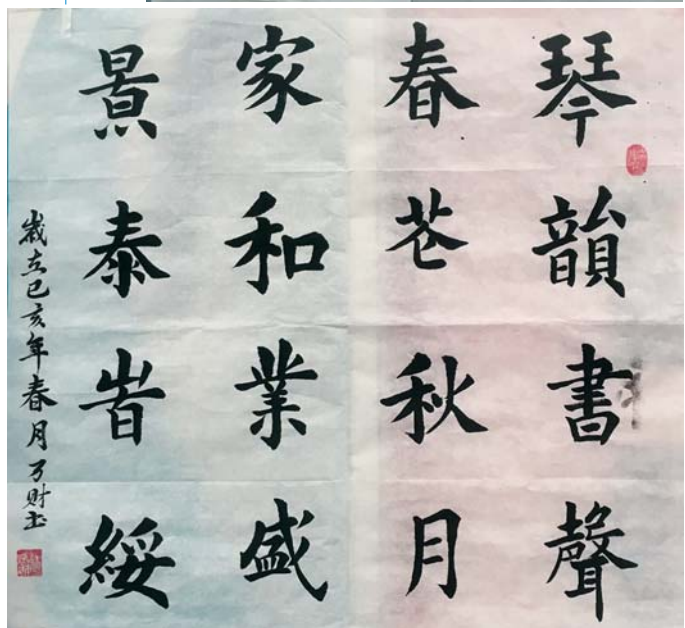 琴韻書聲
春芲秋月
家和業盛
景泰旹綏
歲在己亥年春月乃财书